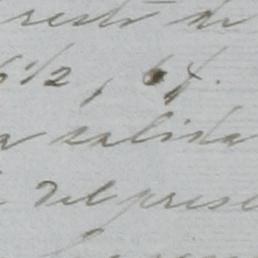 resto de
6 1/2, 64.
a salida
del prese